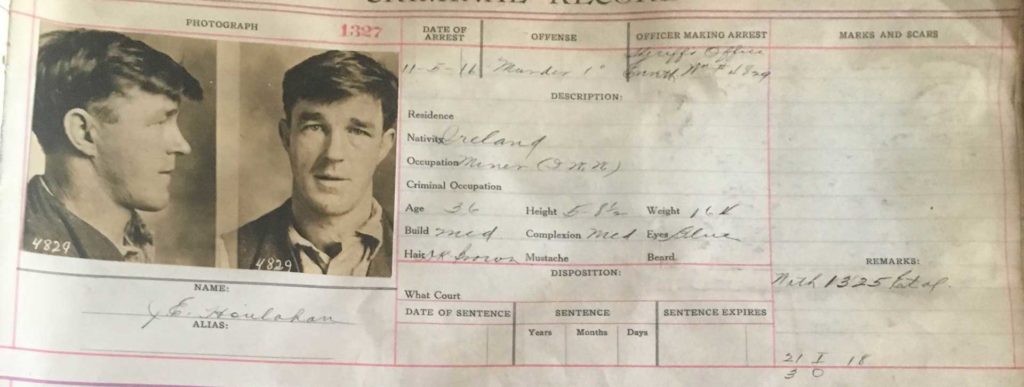 CRIMINAL RECORD
PHOTOGRAPH 1327
DATE OF ARREST
OFFENSE
OFFICER MAKING ARREST
MARKS AND SCARS
11-5-16
Murder 1°
Sheriffs Office
DESCRIPTION:
Residence
Nativity Ireland
Occupation Miner
Criminal Occupation
Age 36 Height 5-8½ Weight
Build med Complexion Med Eyes Blue
Hair Dk brown Mustache Beard
4829
4829
NAME:
E. Houlahan
ALIAS:
DISPOSITION:
What Court
DATE OF SENTENCE
SENTENCE
SENTENCE EXPIRES
Years Months Days
REMARKS:
With 1325 et al.
21 I 18
3 O